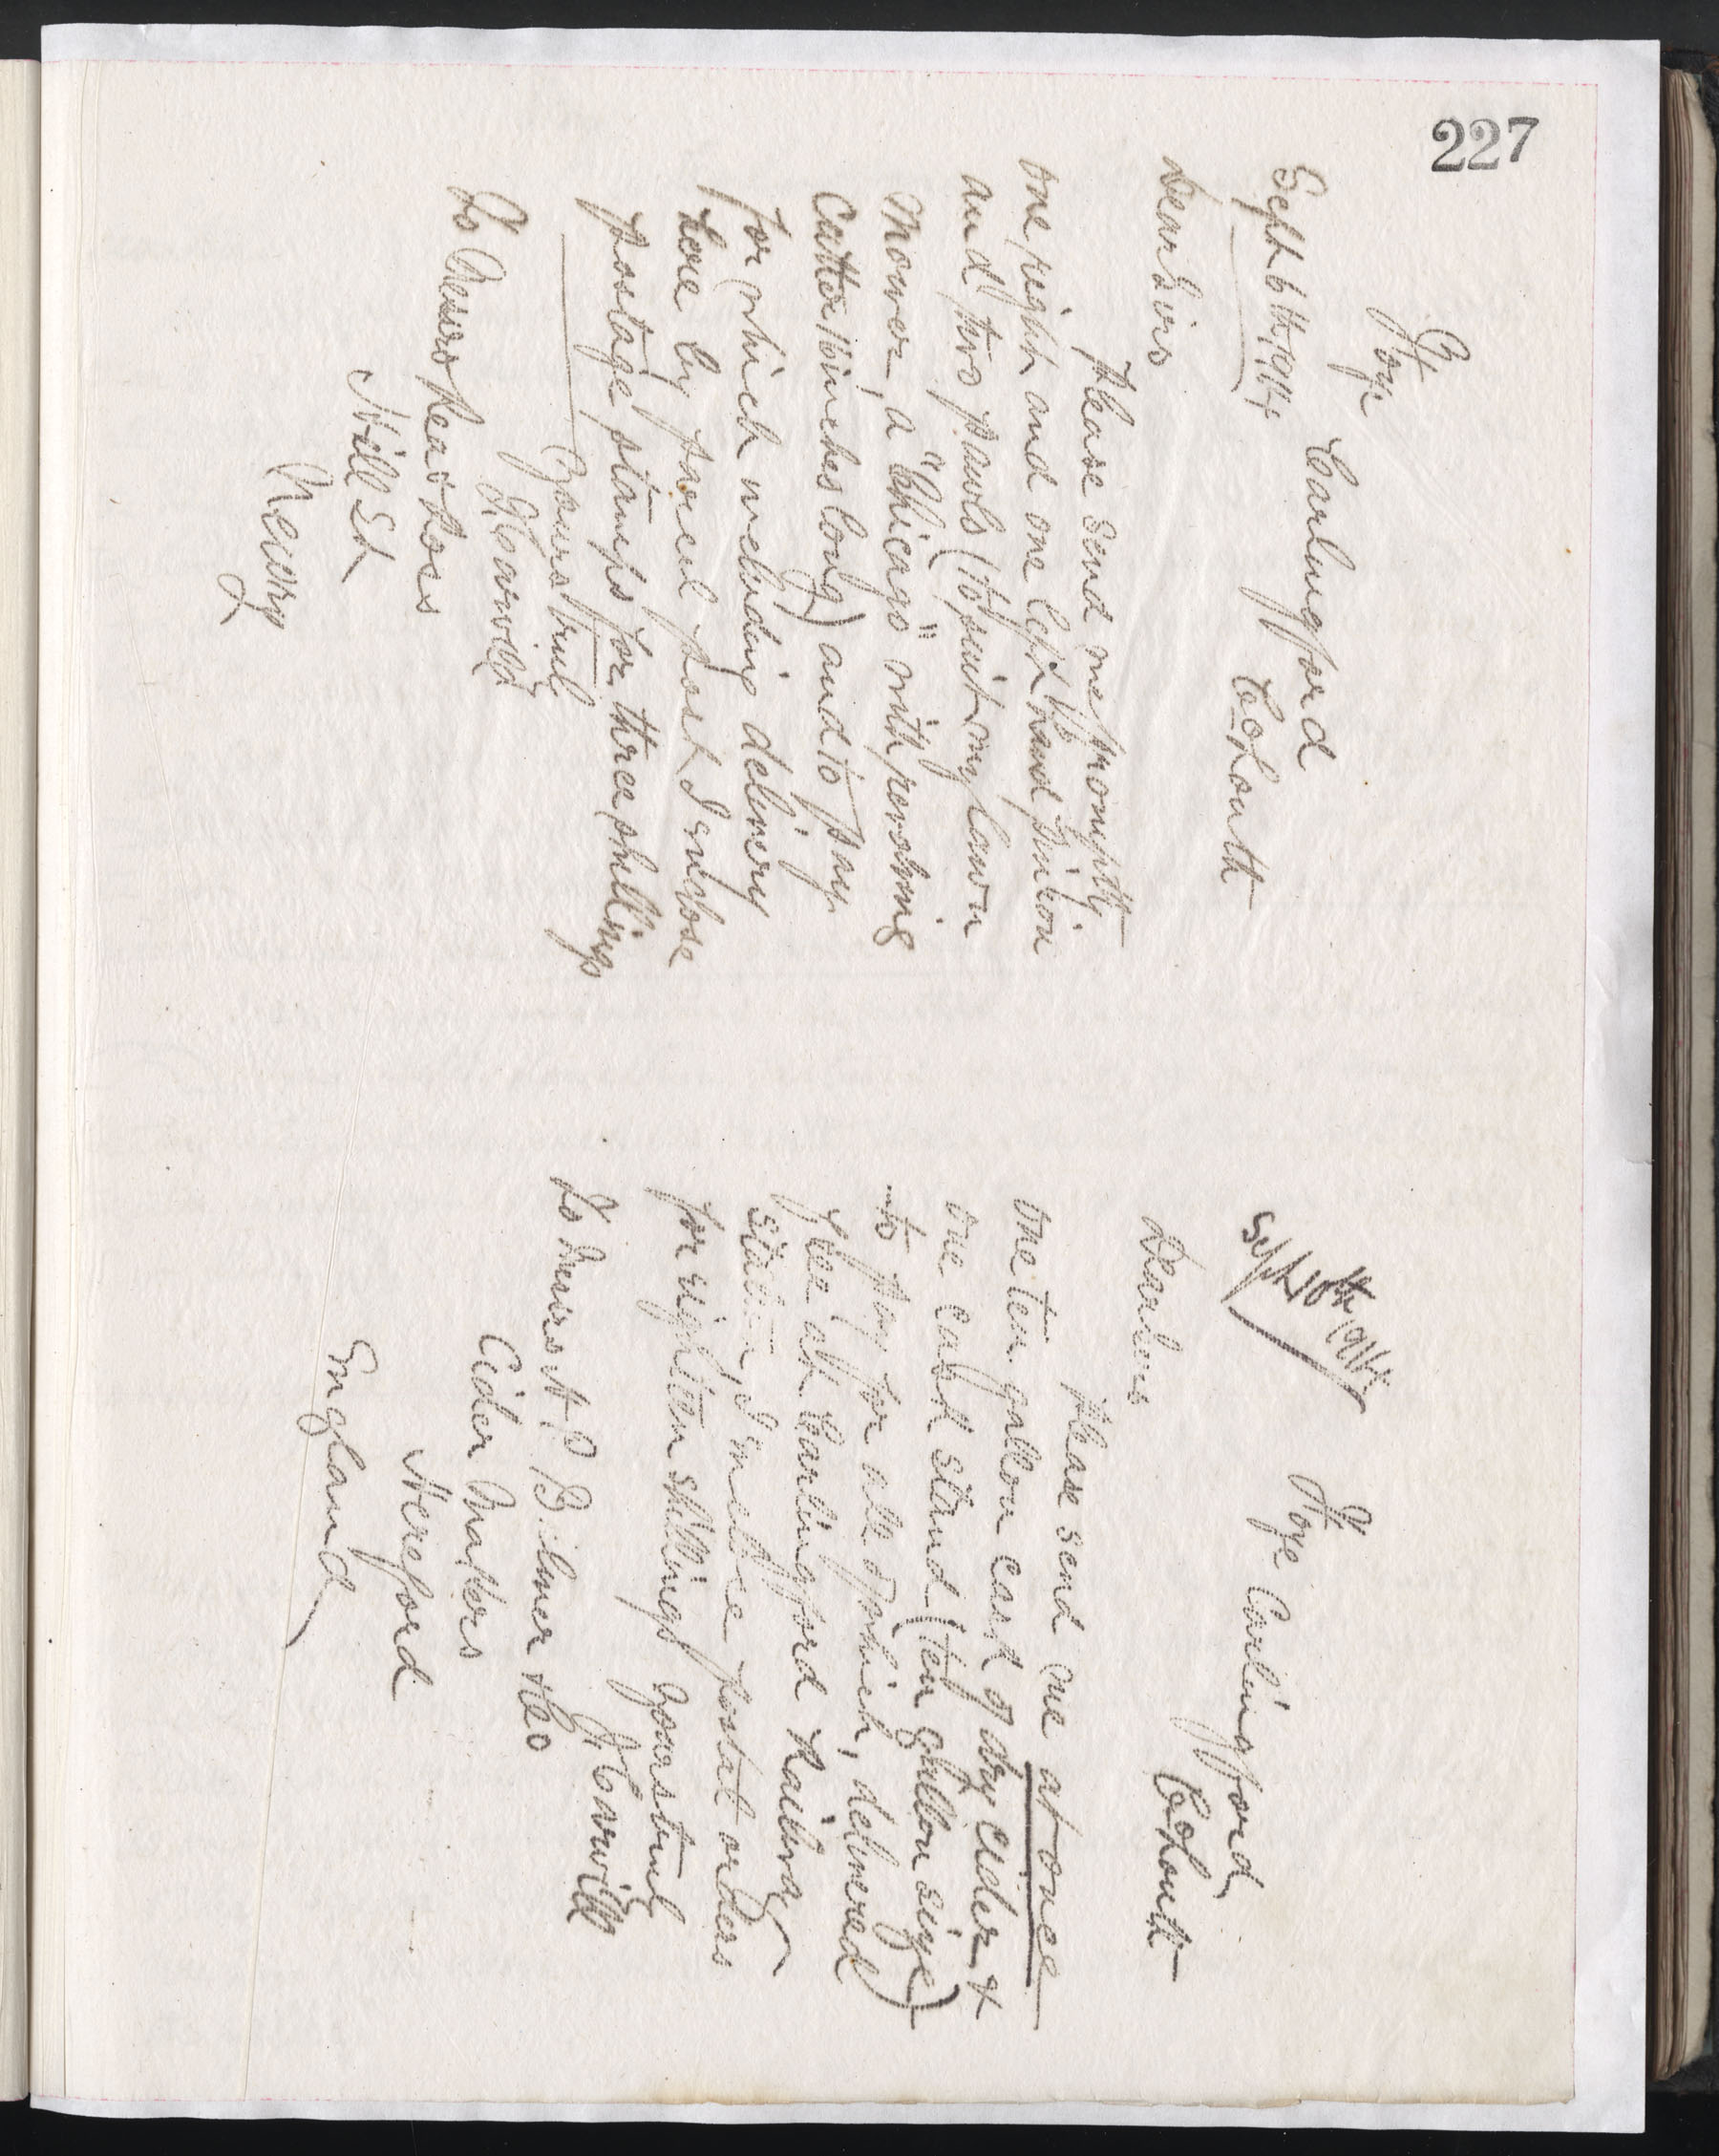 227
Ghan House
Carlingford
Co Louth
Sept 6th 1914
Dear Sirs
Please send me promptly
one right and one left hand pinion
and two pawls (to suit my lawn
mower, a "Chicago" with revolving
Cutter 16 inches long) and to pay
for which including delivery
here by parcel post I enclose
postage stamps for three shillings
Yours truly
To Messrs
Hill St
Newry
Sept 10th 1914
Carlingford
Co Louth
Dear Sirs
Please send me at once
one ten gallon cask of dry cider &
one cask stand (ten gallon size)
to pay for all of which, delivered
free at Carlingford Railway
Station, I enclose postal orders
for eighteen shillings Yours truly
To Messrs H P Bulmer & Co
Cider Makers
Hereford
England